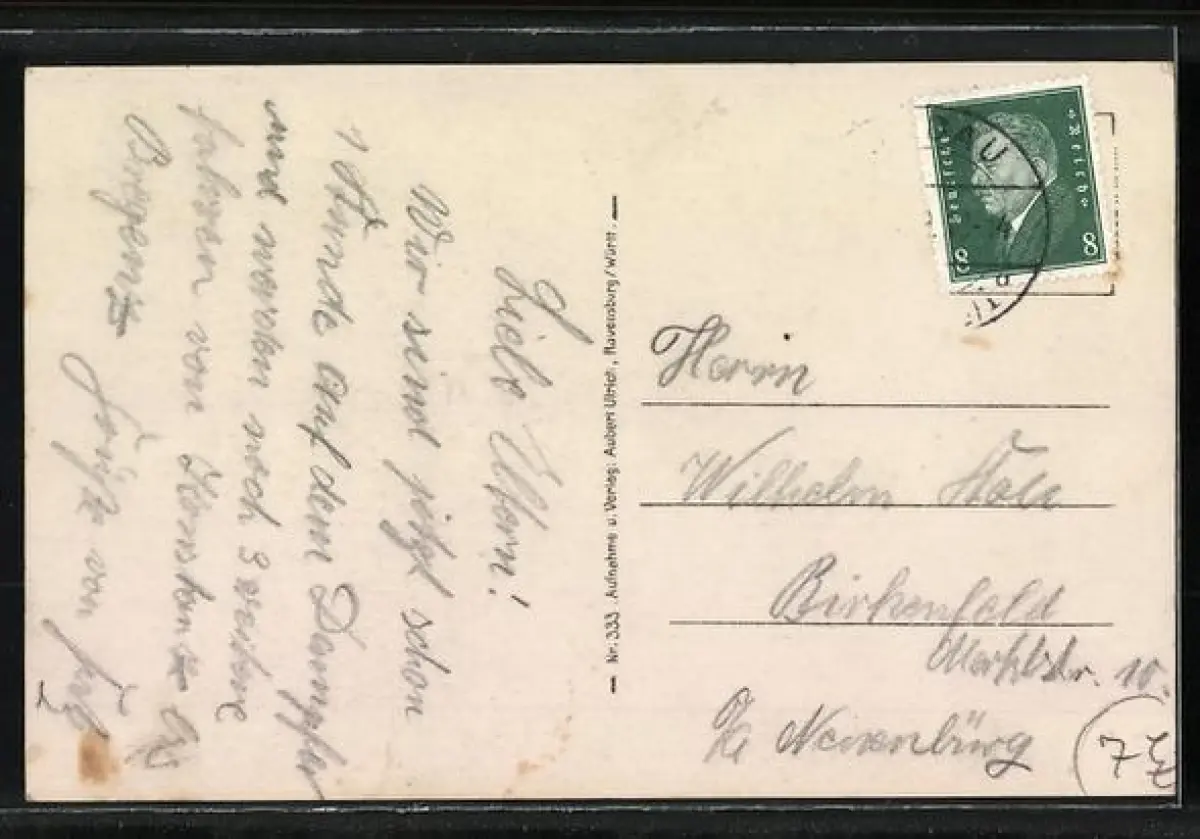 Liebe Eltern!
Wir sind jetzt schon
1 Stunde auf dem Dampfer
und werden noch 3 weitere
fahren von Konstanz
Bregenz
von
Nr. 333 Aufnahme u. Verlag: Aubert Ulrich, Ravensburg/Württ.
Deutsches Reich
8 8
AU
Herrn
Wilhelm
Birkenfeld
Marktstr. 10.
Neuenbürg